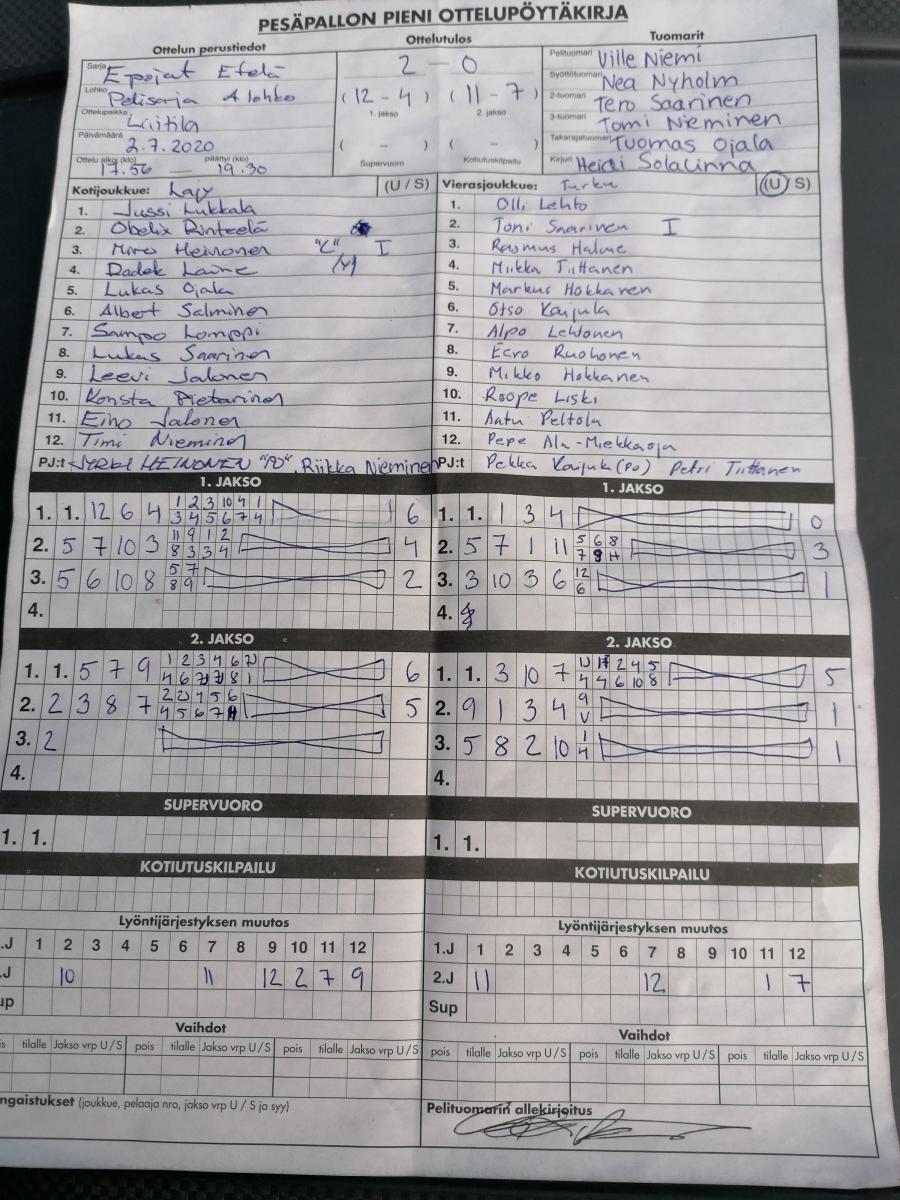 PESÄPALLON PIENI OTTELUPÖYTÄKIRJA
Ottelun perustiedot
Sarja Epojat Etelä
Lohko Pelisarja A lohko
Ottelupaikka Laitila
Päivämäärä
2.7.2020
Ottelu alkoi (klo) päättyi (klo)
17.56 — 19.30
Ottelutulos
2 — 0
(12 - 4) (11 - 7)
1. jakso 2. jakso
( - ) ( - )
Supervuoro Kotiutuskilpailu
Tuomarit
Pelituomari Ville Niemi
Syöttötuomari Nea Nyholm
2-tuomari Tero Saarinen
3-tuomari Tomi Nieminen
Takarajatuomari Tuomas Ojala
Kirjuri Heidi Solalinna
Kotijoukkue: (U / S)
1. Jussi Lukkala
2. Obelix Rinteelä
3. Miro Heinonen "C" I
4. Radek Laine
5. Lukas Ojala
6. Albert Salminen
7. Sampo Lomppi
8. Lukas Saarinen
9. Leevi Jalonen
10. Konsta Pietarinen
11. Eino Jalonen
12. Timi Nieminen
PJ:t JYRKI HEINONEN "PJ", Riikka Nieminen
Vierasjoukkue: Turku (U / S)
1. Olli Lehto
2. Toni Saarinen I
3. Rasmus Halme
4. Miikka Tiittanen
5. Markus Hokkanen
6. Otso Kaijula
7. Alpo Lehtonen
8. Eero Ruohonen
9. Mikko Hokkanen
10. Roope Liski
11. Aatu Peltola
12. Pepe Ala-Miekkaoja
PJ:t Pekka Kaijula (PJ) Petri Tiittanen
1. JAKSO
1. 1. 12 6 4 1 2 3 10 4 1 6
3 4 5 6 7 4
2. 5 7 10 3 11 9 1 2 4
8 3 3 4
3. 5 6 10 8 5 7 2
8 9
4.
1. JAKSO
1. 1. 1 3 4 0
2. 5 7 1 11 5 6 8 3
7 9 11
3. 3 10 3 6 12 1
6
4.
2. JAKSO
1. 1. 5 7 9 1 2 3 4 6 6
2. 2 3 8 7 5
3. 2
4.
2. JAKSO
1. 1. 3 10 7 2 4 5 5
4 4 6 10 8
2. 9 1 3 4 9 1
3. 5 8 2 10 1 1
4
4.
SUPERVUORO
1. 1.
SUPERVUORO
1. 1.
KOTIUTUSKILPAILU
KOTIUTUSKILPAILU
Lyöntijärjestyksen muutos
.J 1 2 3 4 5 6 7 8 9 10 11 12
.J 10 11 12 2 7 9
up
Lyöntijärjestyksen muutos
1.J 1 2 3 4 5 6 7 8 9 10 11 12
2.J 11 12 1 7
Sup
Vaihdot
is tilalle Jakso vrp U/S pois tilalle Jakso vrp U/S pois tilalle Jakso vrp U/S
Vaihdot
pois tilalle Jakso vrp U/S pois tilalle Jakso vrp U/S pois tilalle Jakso vrp U/S
ngaistukset (joukkue, pelaaja nro, jakso vrp U / S ja syy)
Pelituomarin allekirjoitus